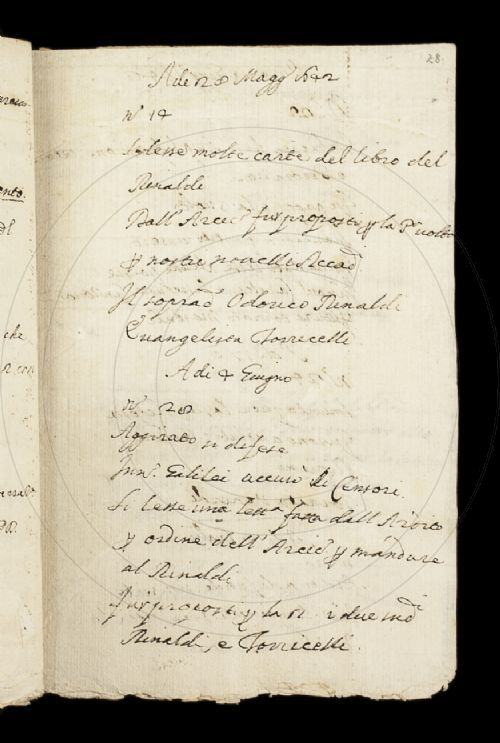 28
Adi 28 Magg.o 1642
N.o 14
Si lesse molte carte del libro del
Rinaldi
Dall' Arcic.o fur proposti p la P.a volta
p nostri novelli Accad.i
Il soprad.o Odorico Rinaldi
Evangelista Torricelli
Adi 4 Giugno
N.o
Aggirato si difese
Inn.o Galilei accusò li Censori.
Si lesse una lett.a fatta dall'
p ordine dell' Arcic.o p mandare
al Rinaldi
fur proposti p la 2.a i due
Rinaldi, e Torricelli.